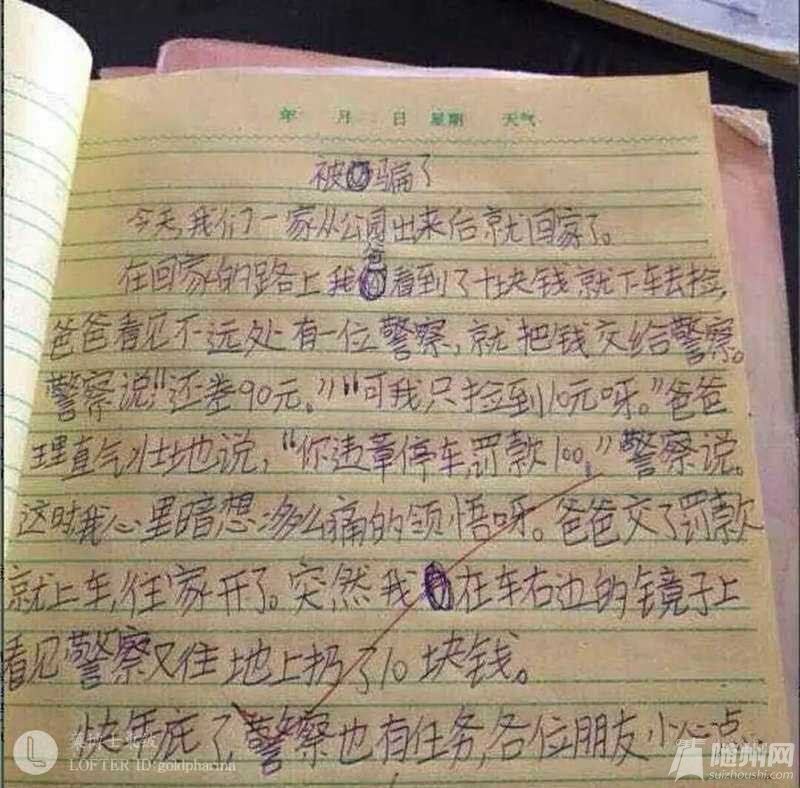 年 月 日 星期 天气
被骗了
今天,我们一家从公园出来后就回家了。
在回家的路上我爸看到了十块钱就下车去捡,
爸爸看见不远处有一位警察,就把钱交给警察。
警察说“还差90元。”“可我只捡到10元呀。”爸爸
理直气壮地说,“你违章停车,罚款100。”警察说。
这时我心里暗想:多么痛的领悟呀。爸爸交了罚款
就上车,往家开了。突然我在车右边的镜子上
看见警察又往地上扔了10块钱。
快年底了,警察也有任务,各位朋友小心点
LOFTER ID:goldpharma
随州网
suizhoushi.com